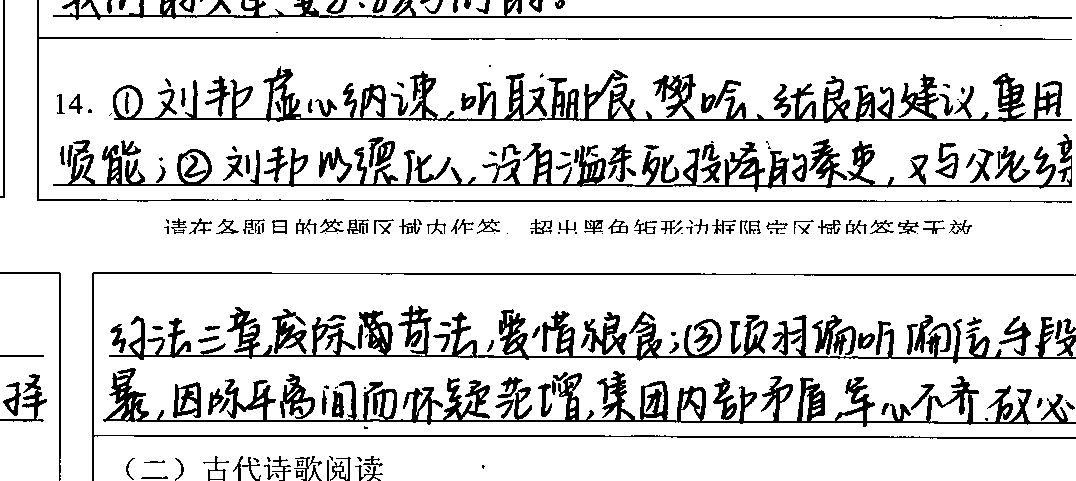 14. ①刘邦虚心纳谏,听取郦食、樊哙、张良的建议,重用
贤能;②刘邦以德化人,没有滥杀死投降的秦吏,又与父老
请在各题目的答题区域内作答,超出黑色矩形边框限定区域的答案无效
约法三章,废除苛法,爱惜粮食;③项羽偏听偏信,手段
择
暴,因陈平离间而怀疑范增,集团内部矛盾,军心不齐.故必
(二)古代诗歌阅读